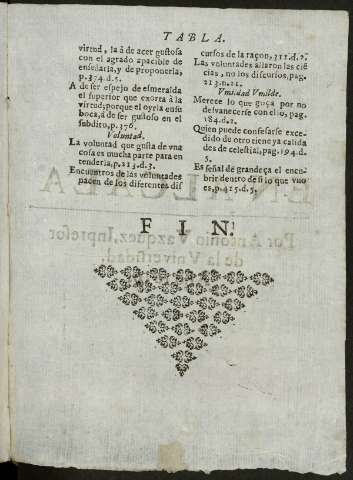 TABLA.
virtud, la à de acer gustosa
con el agrado apacible de
enseñarla, y de proponerla,
p.374.d.5.
A de ser espejo de esmeralda
el superior que exorta à la
virtud; porque el oyrla en su
boca, à de ser gustoso en el
subdito, p.376.
Voluntad.
La voluntad que gusta de vna
cosa es mucha parte para en
tenderla, p.213.d.3.
Encuentros de las voluntades
nacen de los diferentes dis
cursos de la raçon, 311.d.2.
Las voluntades allaron las ciē
cias, no los discursos, pag.
213.n.21.
Vmildad Vmilde.
Merece lo que goça por no
desvanecerse con ello, pag.
184.d.2.
Quien puede confesarse exce-
dido de otro tiene ya calida
des de celestial, pag.194.d.
5.
Es señal de grandeça el encu-
brir dentro de si lo que vno
es, p.415.d.5.
FIN.
EN ALCALA
Por Antonio Vazquez, Inpresor
de la Vniversidad.